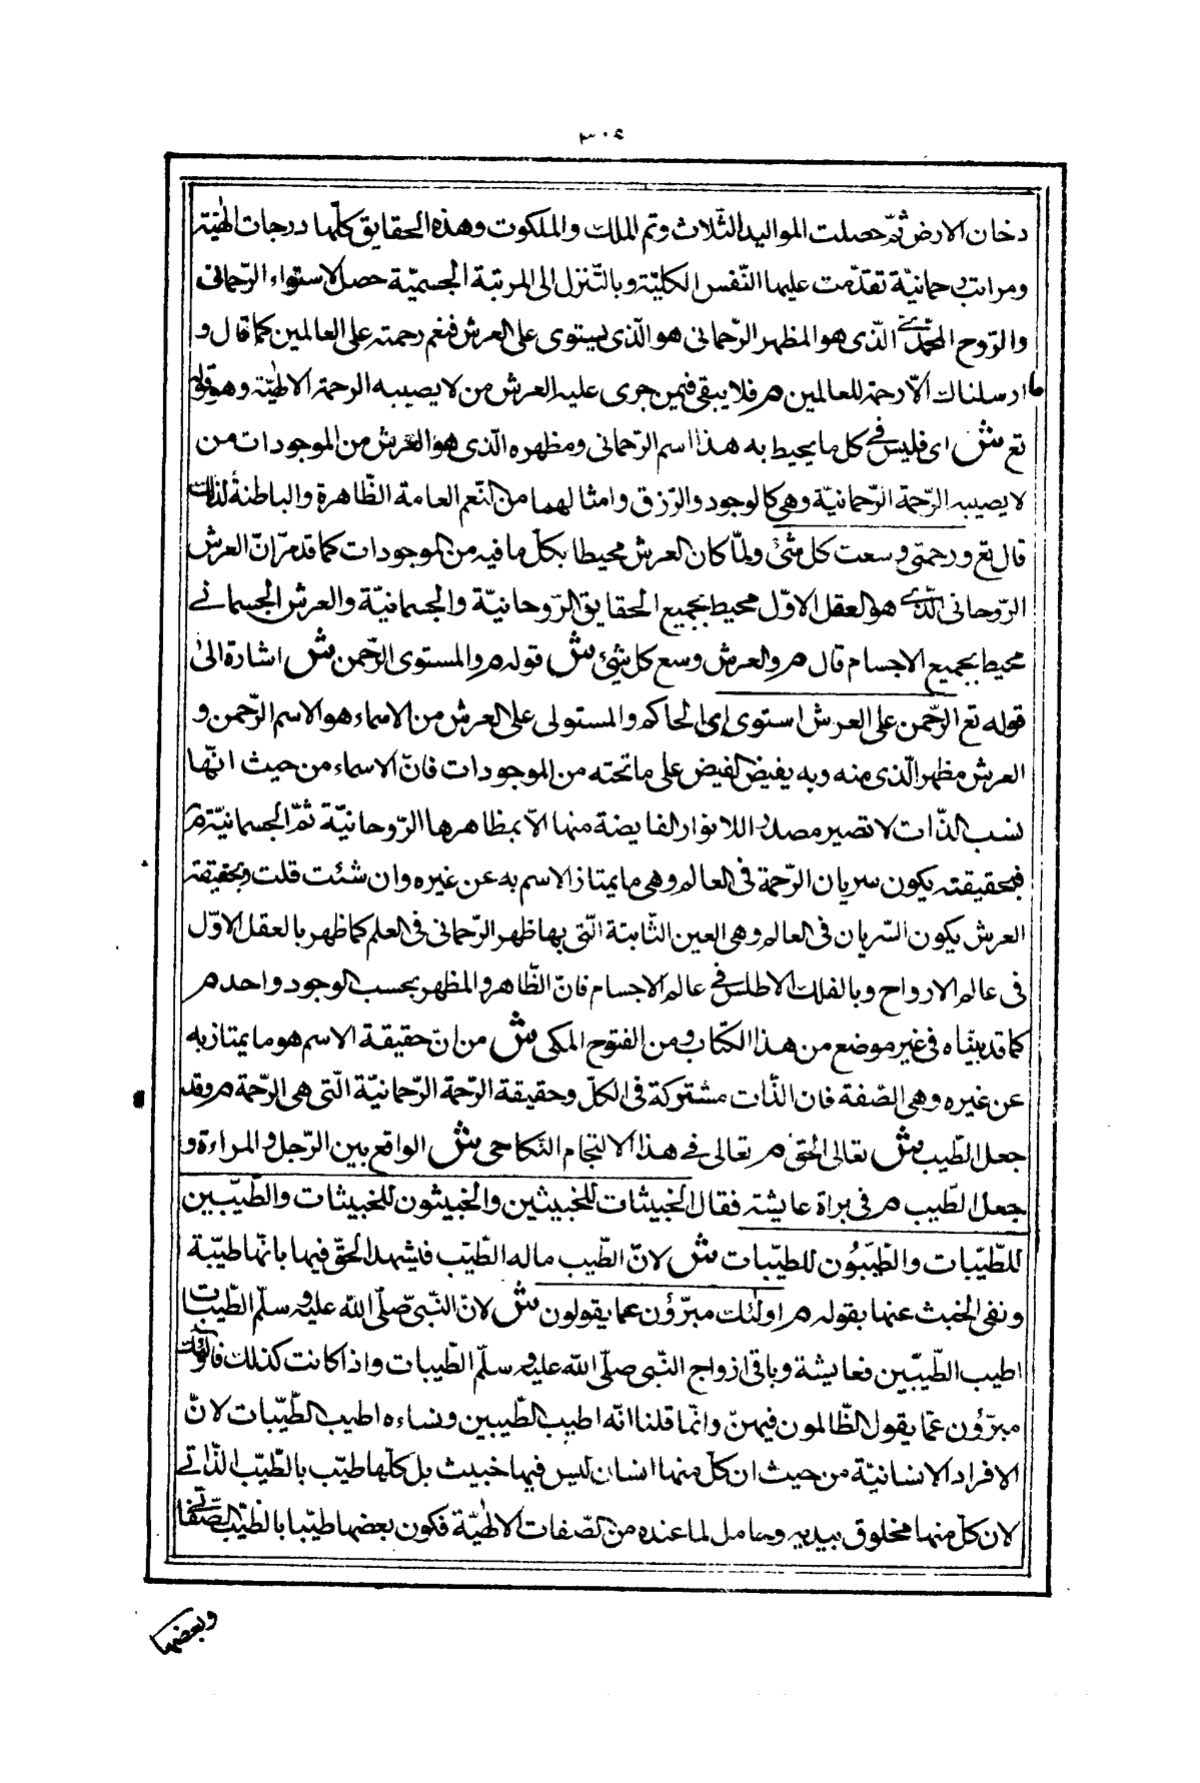 ٣٠٤
دخان الارض ثمّ حصلت المواليد الثّلاث وتم الملك والملكوت وهذه الحقايق كلّها درجات الهٰيّة
ومراتب رحمانيّة تقدّمت عليها النّفس الكليّة وبالتّنزل الى المرتبة الجسميّة حصل الاستواء الرّحمانى
والرّوح المحمّدى الّذى هو المظهر الرّحمانى هو الّذى يستوى على العرش فنعم رحمته على العالمين كما قال و
ما ارسلناك الّا رحمة للعالمين م فلا يبقى فيمن جرى عليه العرش من لا يصيبه الرحمة الالٰهيّة وهو قوله
تع ش اى فليس فى كل ما يحيط به هذا اسم الرّحمانى ومظهره الّذى هو العرش من الموجودات من
لا يصيبه الرّحمة الرّحمانيّة وهى كالوجود والرّزق وامثالهما من النّعم العامة الظّاهرة والباطنة لذلك
قال تع ورحمتى وسعت كل شئ ولمّا كان العرش محيطا بكلّ ما فيه من الموجودات كما قد مرّ انّ العرش
الرّوحانى الّذى هو العقل الاوّل محيط بجميع الحقايق الرّوحانيّة والجسمانيّة والعرش الجسمانى
محيط بجميع الاجسام قال م والعرش وسع كل شئ ش قوله م والمستوى الرّحمن ش اشارة الى
قوله تع الرّحمن على العرش استوى اى الحاكم والمستولى على العرش من الاسماء هو الاسم الرّحمن و
العرش مظهر الّذى منه وبه يفيض الفيض على ما تحته من الموجودات فانّ الاسماء من حيث انّها
نسب الذّات لا تصير مصدرا للانوار الفايضة منها الّا بمظاهرها الرّوحانيّة ثمّ الجسمانيّة م
فبحقيقته يكون سريان الرّحمة فى العالم وهى ما يمتاز الاسم به عن غيره وان شئت قلت وبحقيقة
العرش يكون السّريان فى العالم وهى العين الثّابتة الّتى بها ظهر الرّحمانى فى العلم كما ظهر بالعقل الاوّل
فى عالم الارواح وبالفلك الاطلس فى عالم الاجسام فانّ الظّاهر والمظهر بحسب الوجود واحد م
كما قد بيّناه فى غير موضع من هذا الكتاب ومن الفتوح المكى ش من انّ حقيقة الاسم هو ما يمتاز به
عن غيره وهى الصّفة فان الذّات مشتركة فى الكلّ وحقيقة الرّحمة الرّحمانيّة الّتى هى الرّحمة م وقد
جعل الطّيب ش تعالى الحق م تعالى فى هذا الالتحام النّكاحى ش الواقع بين الرّجل والمراءة و
جعل الطّيب م فى براة عايشة فقال الخبيثات للخبيثين والخبيثون للخبيثات والطّيّبين
للطّيّبات والطّيّبُون للطيّبات ش لانّ الطّيب ماله الطّيّب فيشهد الحقّ فيها بانّها طيّبة
ونفى الخبث عنها بقوله م اولئك مبرّؤن عما يقولون ش لانّ النّبىّ صلّى الله عليه وسلّم الطّيبات
اطيب الطّيّبين فعايشة وباقى ازواج النّبى صلّى الله عليه وسلّم الطّيبات واذا كانت كذلك فاولئك
مبرّؤن عمّا يقول الظّالمون فيهنّ وانّما قلنا انّه اطيب الطّيبين ونساءه اطيب الطّيّبات لانّ
الافراد الانسانيّة من حيث ان كلّ منها انسان ليس فيها خبيث بل كلّها طيّب بالطّيّب الذّاتى
لان كلّ منها مخلوق بيديه وحامل لما عنده من الصّفات الالٰهيّة فكون بعضها طيّبا بالطّيّب الصّفاتى
وبعضها